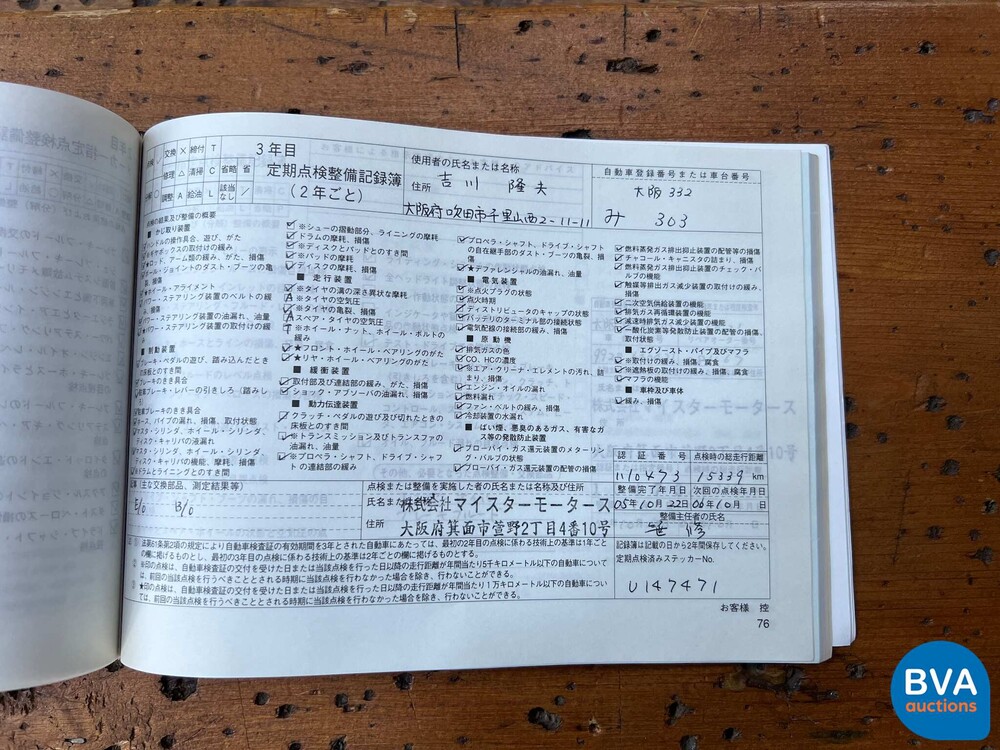 交換 × 締付 T
修理 △ 清掃 C 省略 省
調整 A 給油 L 該当なし ／
3年目
定期点検整備記録簿
（2年ごと）
使用者の氏名または名称
吉川 隆夫
住所
大阪府吹田市千里山西2-11-11
自動車登録番号または車台番号
大阪 332
み 303
点検の結果及び整備の概要
■ かじ取り装置
ハンドルの操作具合、遊び、がた
ギヤボックスの取付けの緩み
ロッド、アーム類の緩み、がた、損傷
ボール・ジョイントのダスト・ブーツの亀
裂、損傷
★ホイール・アライメント
パワー・ステアリング装置のベルトの緩
み、損傷
パワー・ステアリング装置の油漏れ、油量
★パワー・ステアリング装置の取付けの緩
み
■ 制動装置
ブレーキ・ペダルの遊び、踏み込んだとき
の床板とのすき間
ブレーキのきき具合
駐車ブレーキ・レバーの引きしろ（踏みし
駐車ブレーキのきき具合
ホース、パイプの漏れ、損傷、取付状態
マスタ・シリンダ、ホイール・シリンダ、
ディスク・キャリパの液漏れ
マスタ・シリンダ、ホイール・シリンダ、
ディスク・キャリパの機能、摩耗、損傷
※ドラムとライニングとのすき間
※シューの摺動部分、ライニングの摩耗
ドラムの摩耗、損傷
※ディスクとパッドとのすき間
※パッドの摩耗
ディスクの摩耗、損傷
■ 走行装置
※タイヤの溝の深さ異状な摩耗
A ※タイヤの空気圧
※タイヤの亀裂、損傷
A スペア・タイヤの空気圧
T ※ホイール・ナット、ホイール・ボルトの
緩み
★フロント・ホイール・ベアリングのがた
★リヤ・ホイール・ベアリングのがた
■ 緩衝装置
取付部及び連結部の緩み、がた、損傷
ショック・アブソーバの油漏れ、損傷
■ 動力伝達装置
クラッチ・ペダルの遊び及び切れたときの
床板とのすき間
※トランスミッション及びトランスファの
油漏れ、油量
※プロペラ・シャフト、ドライブ・シャフ
トの連結部の緩み
プロペラ・シャフト、ドライブ・シャフト
の自在継手部のダスト・ブーツの亀裂、損
傷
★デファレンシャルの油漏れ、油量
■ 電気装置
※点火プラグの状態
点火時期
ディストリビュータのキャップの状態
バッテリのターミナル部の接続状態
電気配線の接続部の緩み、損傷
■ 原動機
排気ガスの色
CO、HCの濃度
※エア・クリーナ・エレメントの汚れ、詰
まり、損傷
エンジン・オイルの漏れ
燃料漏れ
ファン・ベルトの緩み、損傷
冷却装置の水漏れ
■ ばい煙、悪臭のあるガス、有害なガ
ス等の発散防止装置
ブローバイ・ガス還元装置のメターリン
グ・バルブの状態
ブローバイ・ガス還元装置の配管の損傷
燃料蒸発ガス排出抑止装置の配管等の損傷
チャコール・キャニスタの詰まり、損傷
燃料蒸発ガス排出抑止装置のチェック・バ
ルブの機能
触媒等排出ガス減少装置の取付けの緩み、
損傷
二次空気供給装置の機能
排気ガス再循環装置の機能
減速時排気ガス減少装置の機能
一酸化炭素等発散防止装置の配管の損傷、
取付状態
■ エグゾースト・パイプ及びマフラ
※取付けの緩み、損傷、腐食
※遮熱板の取付けの緩み、損傷、腐食
マフラの機能
■ 車枠及び車体
緩み、損傷
認証番号 点検時の総走行距離
110473 15339 km
記事（主な交換部品、測定結果等）
E/o B/o
点検または整備を実施した者の氏名または名称及び住所
株式会社マイスターモータース
住所
大阪府箕面市萱野2丁目4番10号
整備完了年月日 次回の点検年月日
05年10月22日 06年10月 日
整備主任者の氏名
法第61条第2項の規定により自動車検査証の有効期間を3年とされた自動車にあたっては、最初の2年目の点検に係わる技術上の基準は1年ごと
の欄に掲げるものとし、最初の3年目の点検に係わる技術上の基準は2年ごとの欄に掲げるものとする。
※印の点検は、自動車検査証の交付を受けた日または当該点検を行った日以降の走行距離が年間当たり5千キロメートル以下の自動車につい
ては、前回の当該点検を行うべきこととされる時期に当該点検を行わなかった場合を除き、行わないことができる。
★印の点検は、自動車検査証の交付を受けた日または当該点検を行った日以降の走行距離が年間当たり1万キロメートル以下の自動車につい
ては、前回の当該点検を行うべきこととされる時期に当該点検を行わなかった場合を除き、行わないことができる。
記録簿は記載の日から2年間保存してください。
定期点検済みステッカーNo.
U147471
お客様 控
76
BVA
auctions